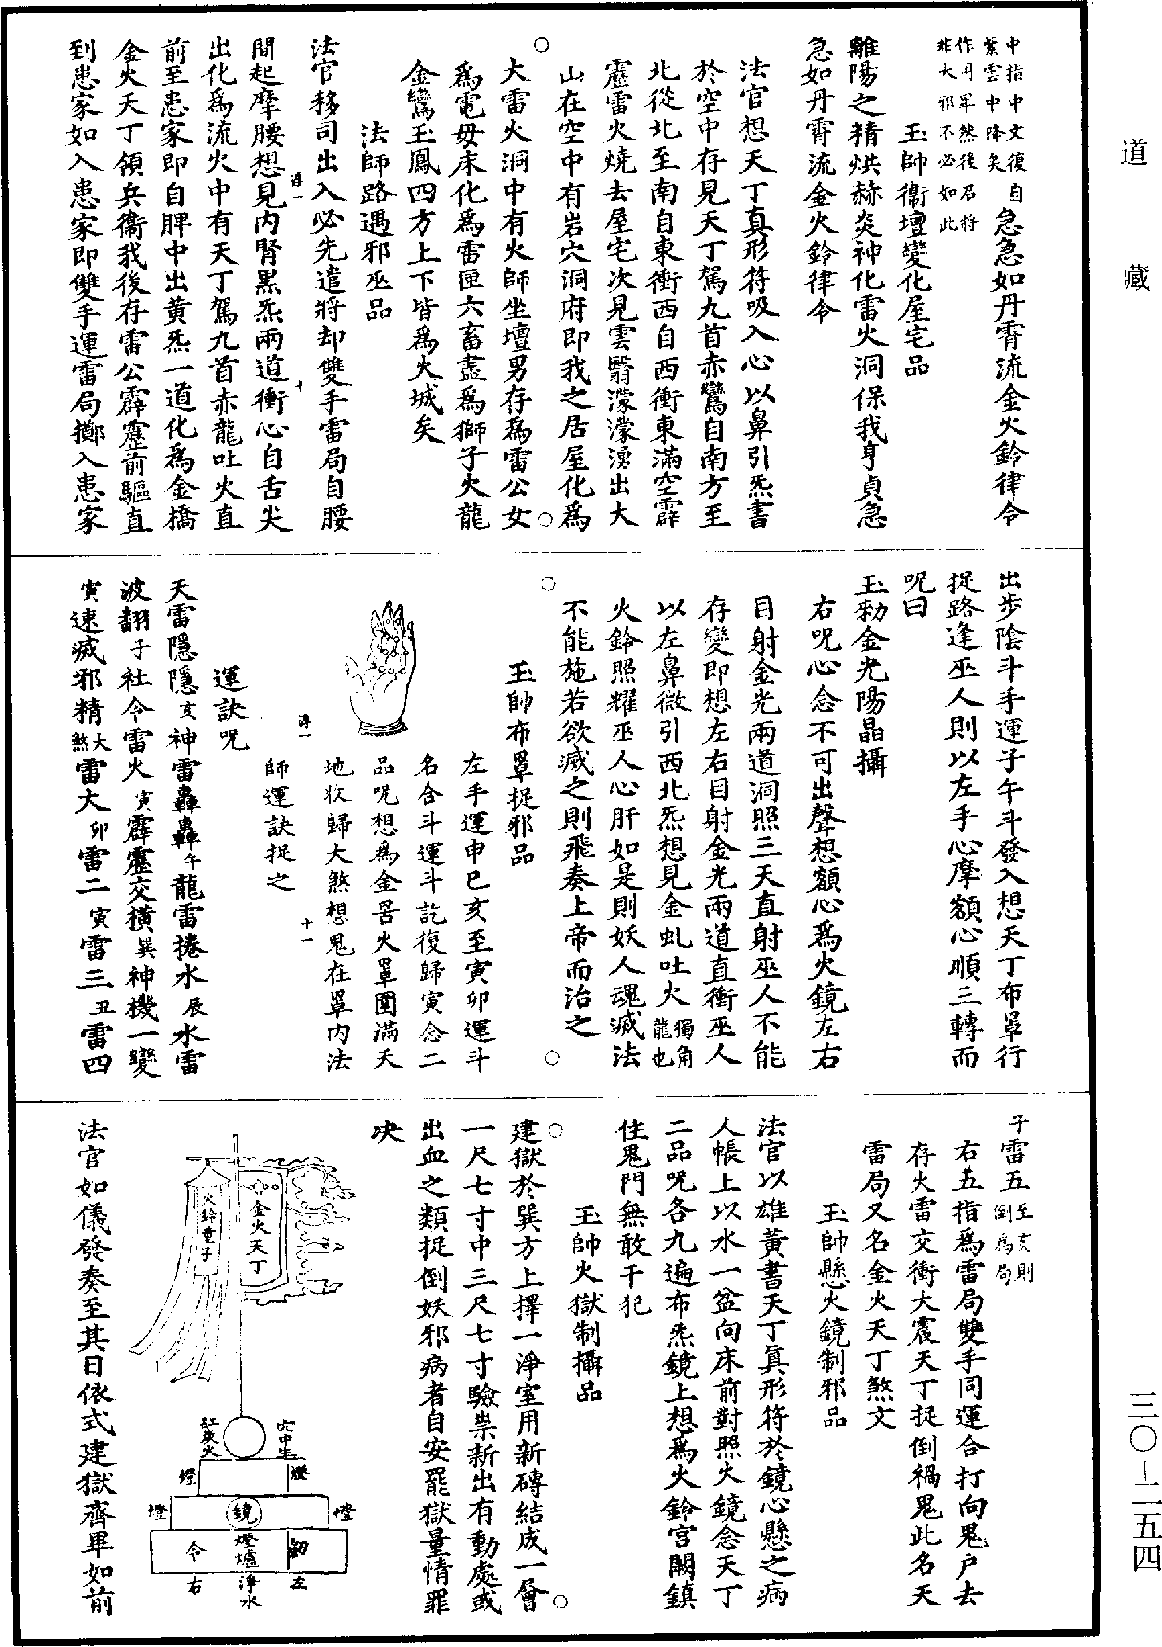 道藏
三〇—二五四
中指中文復自
紫雲中降矣
作用畢然後召將
非大邪不必如此
急急如丹霄流金火鈴律令
玉帥衛壇變化屋宅品
離陽之精烘赫炎神化雷火洞保我亨貞急
急如丹霄流金火鈴律令
法官想天丁真形符吸入心以鼻引炁書
於空中存見天丁駕九首赤鸞自南方至
北從北至南自東衝西自西衝東滿空霹
靂雷火燒去屋宅次見雲翳濛濛湧出大
山在空中有岩穴洞府即我之居屋化為
大雷火洞中有火師坐壇男存為雷公女
為電母床化為雷匣六畜盡為獅子火龍
金鸞玉鳳四方上下皆為火城矣
法師路遇邪巫品
法官移司出入必先遣將却雙手雷局自腰
間起摩腰想見內腎黑炁兩道衝心自舌尖
出化為流火中有天丁駕九首赤龍吐火直
前至患家即自脾中出黄炁一道化為金橋
金火天丁領兵衛我後存雷公霹靂前驅直
到患家如入患家即雙手運雷局擲入患家
出步陰斗手運子午斗發入想天丁布罩行
捉路逢巫人則以左手心摩額心順三轉而
呪曰
玉勑金光陽晶攝
右呪心念不可出聲想額心為火鏡左右
目射金光兩道洞照三天直射巫人不能
存變即想左右目射金光兩道直衝巫人
以左鼻微引西北炁想見金虬吐火獨角龍也
火鈴照耀巫人心肝如是則妖人魂滅法
不能施若欲滅之則飛奏上帝而治之
玉帥布罩捉邪品
左手運申巳亥至寅卯運斗
名合斗運斗訖復歸寅念二
品呪想為金罟火罩圍滿天
地收歸大煞想鬼在罩內法
師運訣捉之
運訣呪
天雷隱隱亥神雷轟轟午龍雷捲水辰水雷
波翻子社令雷火寅霹靂交橫巽神機一變
寅速滅邪精大煞雷大卯雷二寅雷三丑雷四
子雷五至亥則倒為局
右五指為雷局雙手同運合打向鬼户去
存火雷交衝大震天丁捉倒禍鬼此名天
雷局又名金火天丁煞文
玉帥懸火鏡制邪品
法官以雄黄書天丁真形符於鏡心懸之病
人帳上以水一盆向床前對照火鏡念天丁
二品呪各九遍布炁鏡上想為火鈴宫闕鎮
住鬼門無敢干犯
玉帥火獄制攝品
建獄於巽方上擇一淨室用新磚結成一層
一尺七寸中三尺七寸驗祟新出有動處或
出血之類捉倒妖邪病者自安罷獄量情罪
决
金火天丁
火鈴童子
燈
燈
燈
燈
鏡
令
燈爐
劒
右
淨水
左
法官如儀發奏至其日依式建獄齊畢如前